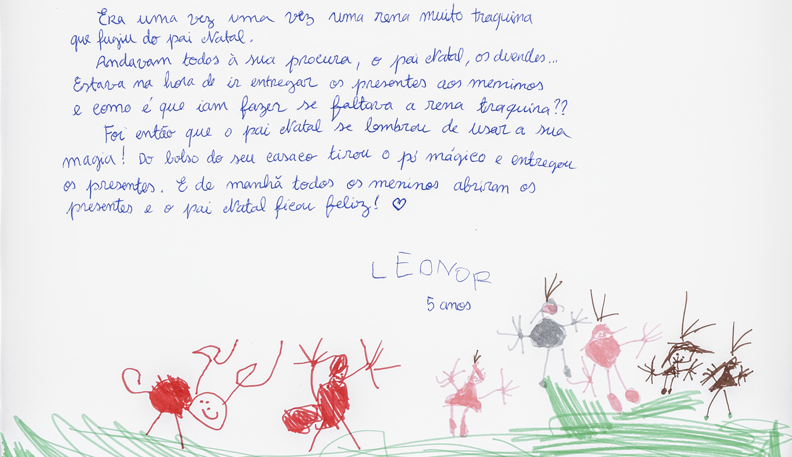 Era uma vez uma vez uma rena muito traquina
que fugiu do pai Natal.
Andavam todos à sua procura, o pai Natal, os duendes...
Estava na hora de ir entregar os presentes aos meninos
e como é que iam fazer se faltava a rena traquina??
Foi então que o pai Natal se lembrou de usar a sua
magia! Do bolso do seu casaco tirou o pó mágico e entregou
os presentes. E de manhã todos os meninos abriram os
presentes e o pai Natal ficou feliz! ♡
LEONOR
5 anos